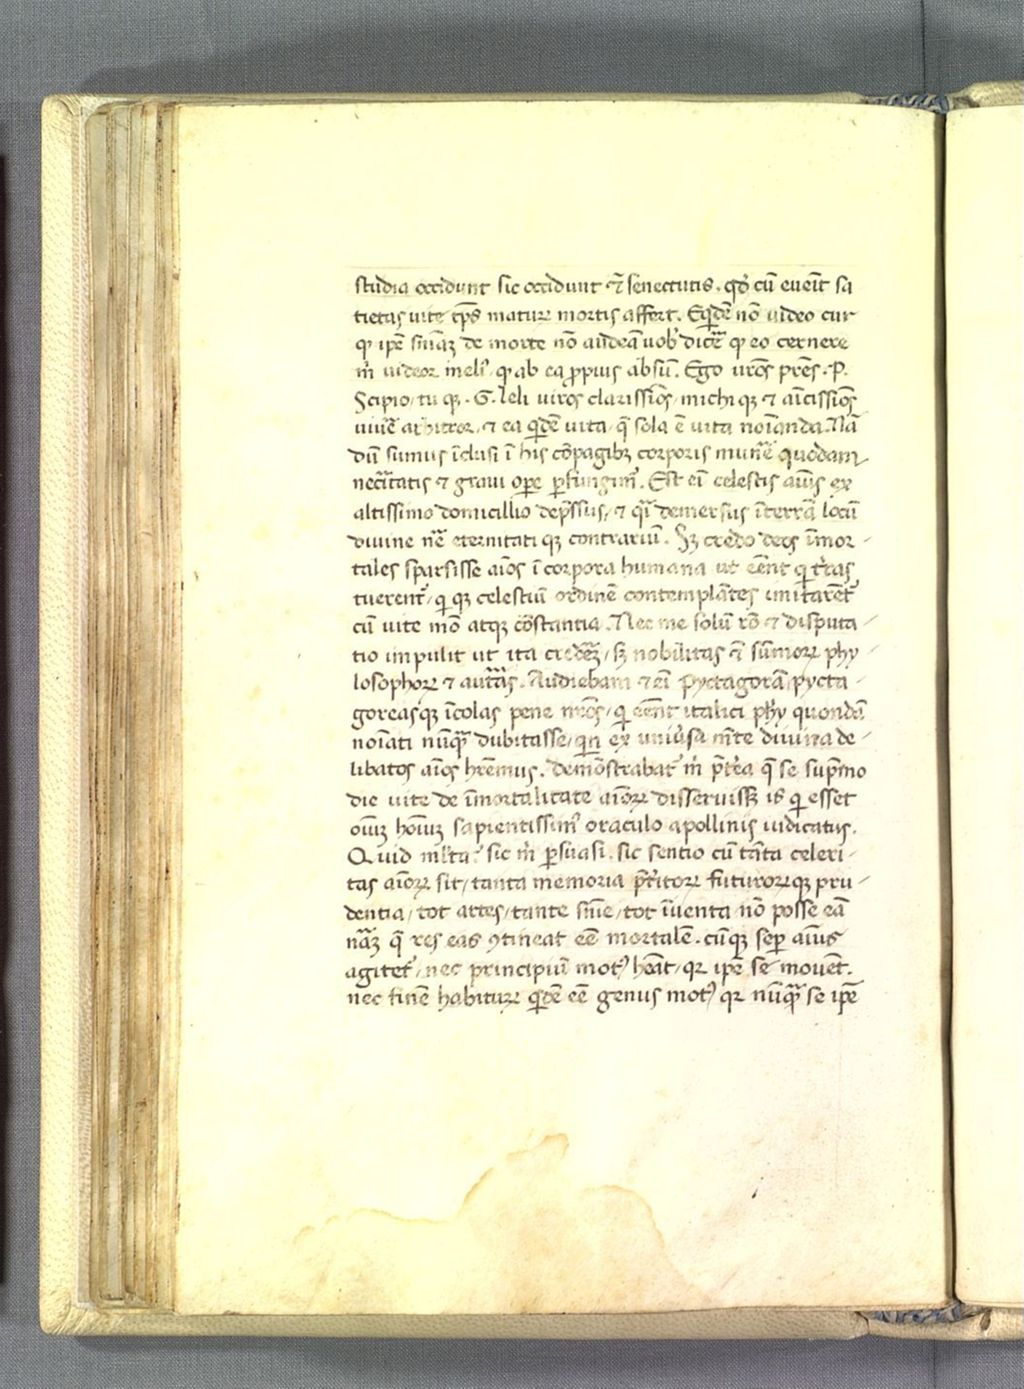 studia occidunt sic occidunt ⁊ senectutis. qd̾ cū eveīt sa
tietas vite tp̄s maturū mortis affert. Eq̇dē nō video cur
qͥ ip̄e sn̄tiāꝫ de morte nō audeā vob̾ dicē̄ ꝙ eo cernere
m̄ videor meli᷒ quāab ea ꝓpius absū. Ego vr̄os pr̄es. P.
Scipio, tu qꝫ. G. leli viros clarissīos, michi qꝫ ⁊ aīcissīos
viuē̄ arbitror, ⁊ ea q̇dē vita, q̄ sola ē vita noīanda. Nā
dū sumus īclusi ī his cōpagibꝫ corporis mun̄e quodam
nec̄itatis ⁊ graui oꝑe ꝑfungim᷒. Est eī celestis aīus ex
altissimo domicilio dep̄ssus, ⁊ q̄ı demersus ī terrā locū
divine nr̄e eternitati qꝫ contrariū. Sꝫ credo deos īmor-
tales sparsisse aīos ī corpora humana ut eēnt q̇ tr̄as
tuerent᷒, q̇ qꝫ celestiū ordinē contemplātes imitarēt᷒
cū vite mō atqꝫ cōstantia. Nec me solū rō ⁊ disputa-
tio impulit ut ita credēꝫ, sꝫ nobilitas ⁊ sūmoꝝ phy-
losophoꝝ ⁊ auct̄as. Audiebam ⁊ eī Pyctagorā, pycta-
goreasqꝫ īcolas pene nr̄os, q̇ eēnt italici phy̾ quondā
noīati nūqᷓ dubitasse, qͥn ex univ̾sa mēte divina de-
libatos aīos hr̄emus. demōstrabat᷒ m̄ p̄t̾ea q̄ se sup̄mo
die vite de īmortalitate aīoꝝ disseruissꝫ is q̇ esset
oīuꝫ hoīuꝫ sapientissim᷒ oraculo apollinis iudicatus.
Quid ml̄ta? sic m̄ ꝑsuasi. sic sentio cū tāta celeri-
tas aīoꝝ sit, tanta memoria p̄t̾itoꝝ futuroꝝqꝫ pru-
dentia, tot artes, tante sciē̄, tot īventa nō posse eā
nāꝫ q̄ res eas ꝯtineat eē mortalē. cūqꝫ seꝑ aīus
agitet᷒, nec principiū mot᷒ heāt, qꝛ ip̄e se movet.
nec finē habituꝝ q̇dē eē genus mot᷒ qꝛ nūqᷓ se ip̄e